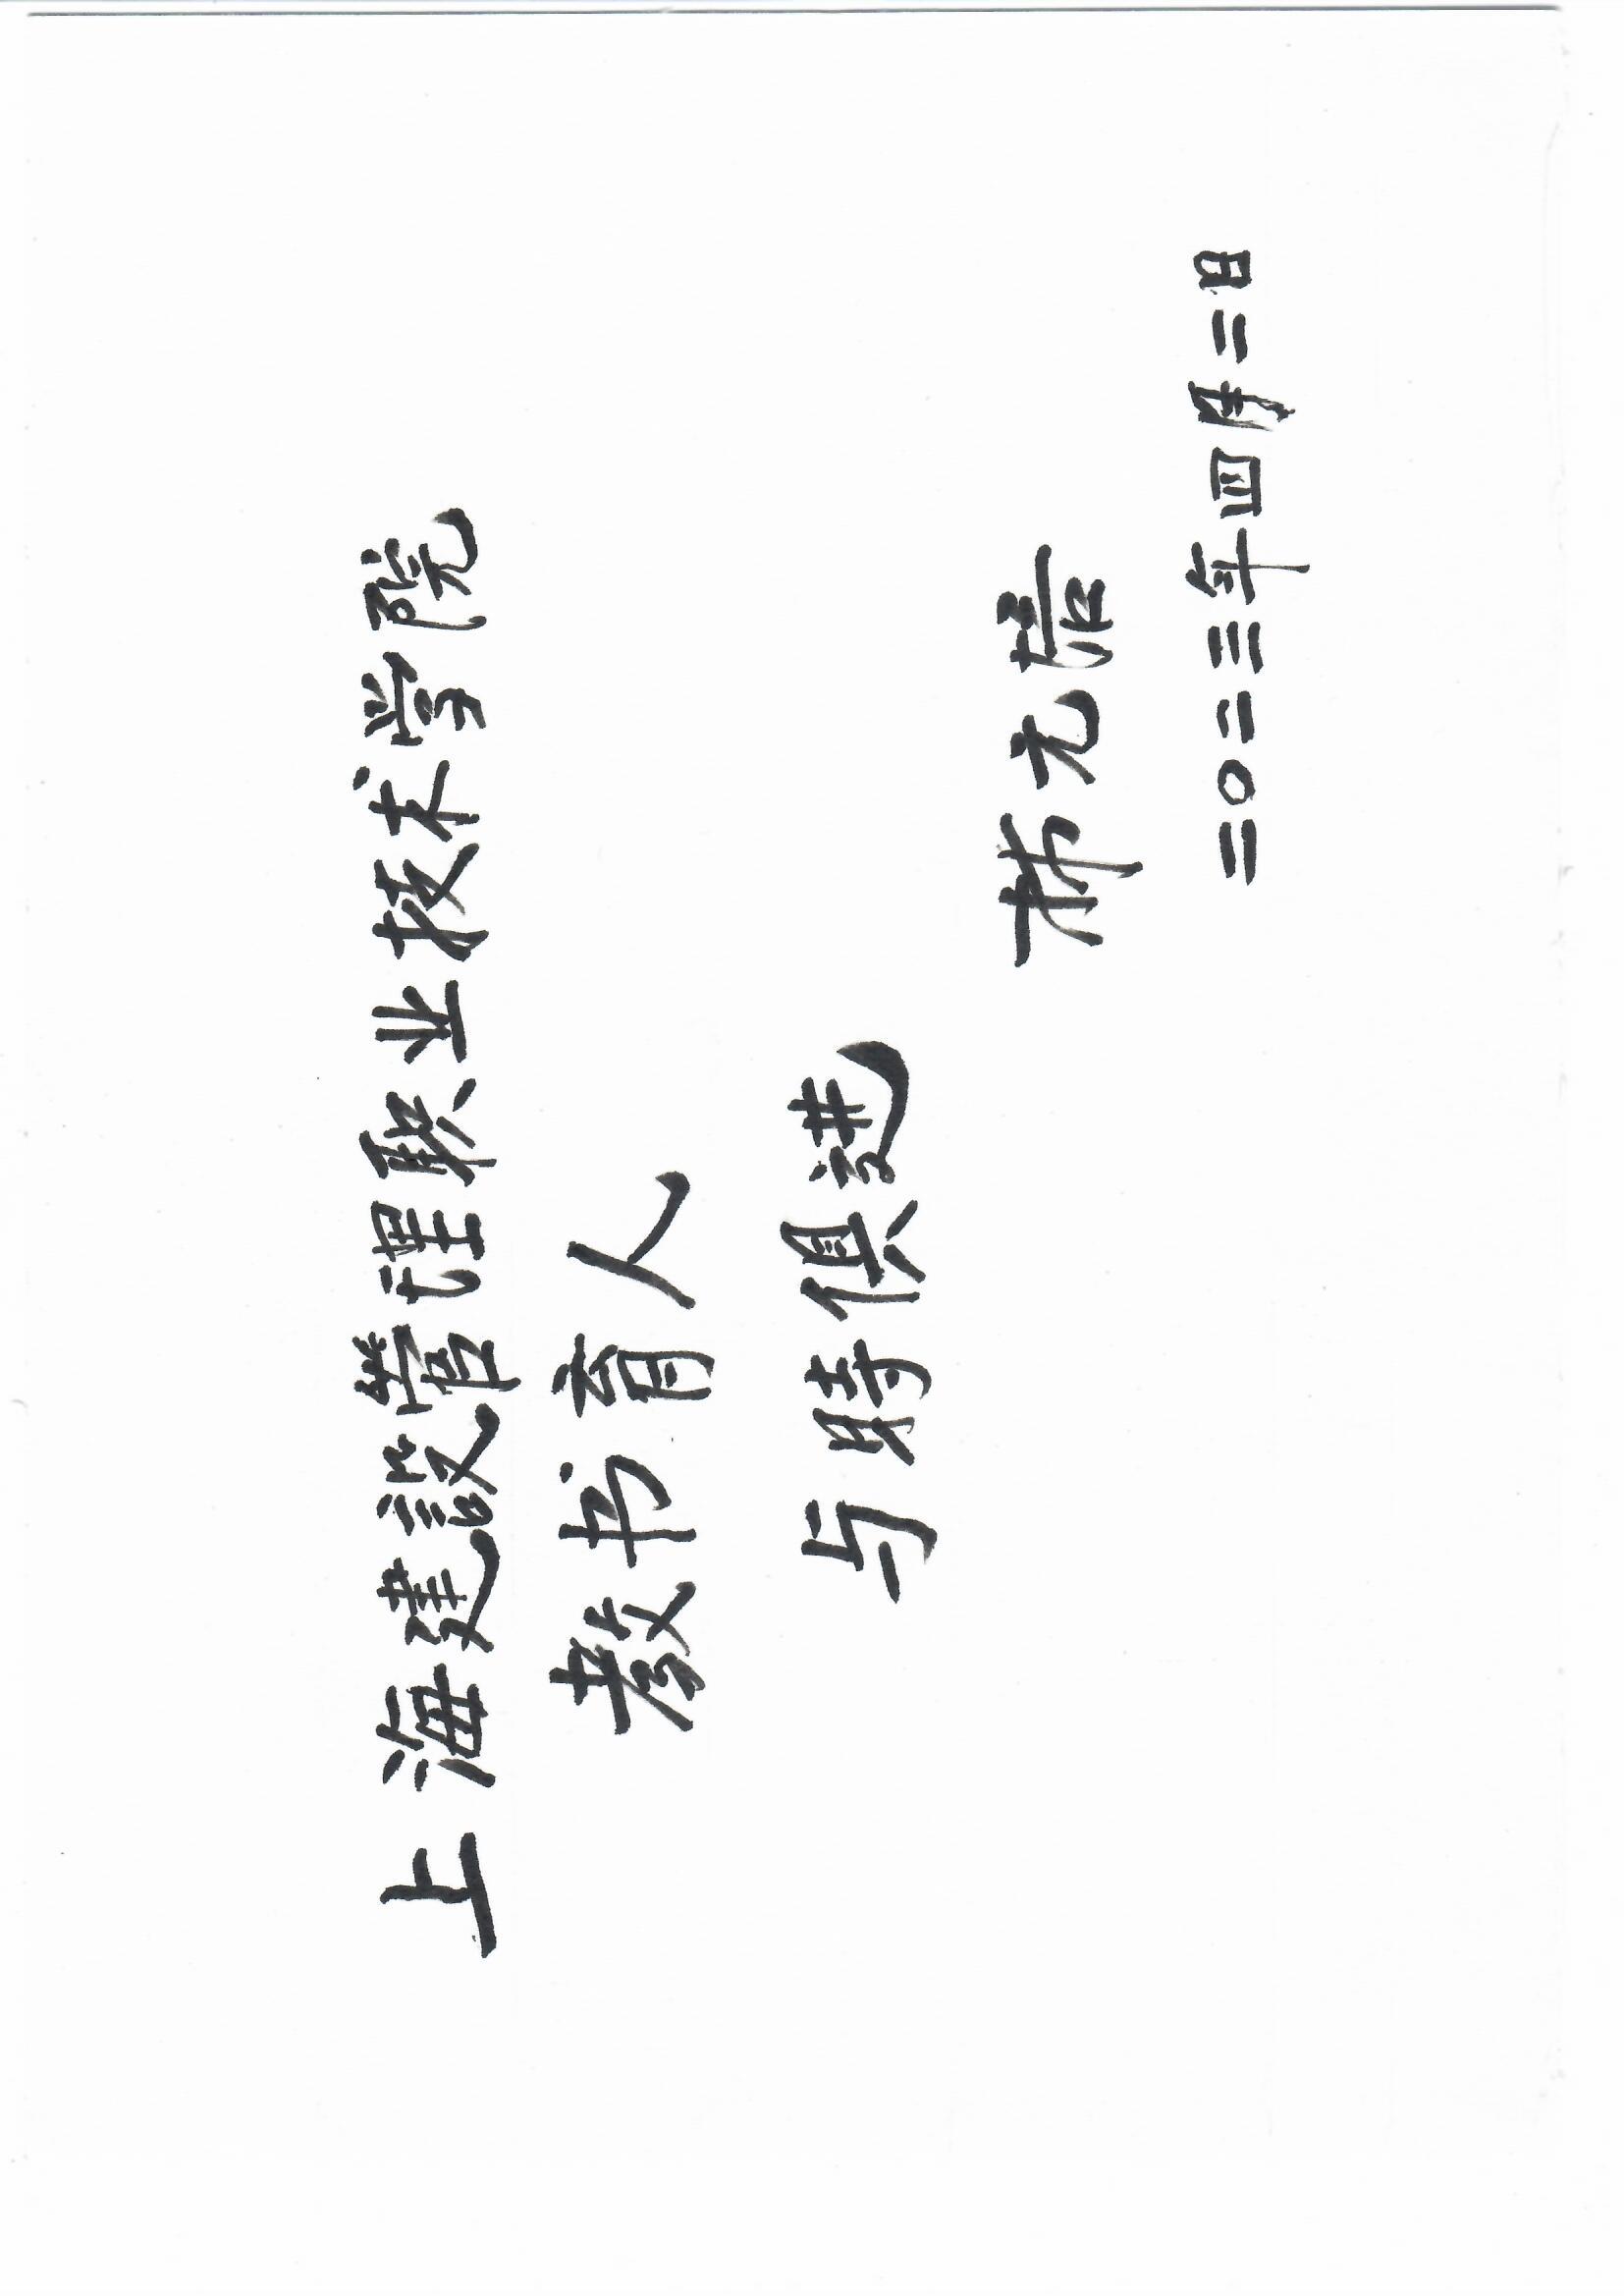 上海建設管理职业技术学院
教书育人
与時俱进
林元培
二〇二三年四月二日